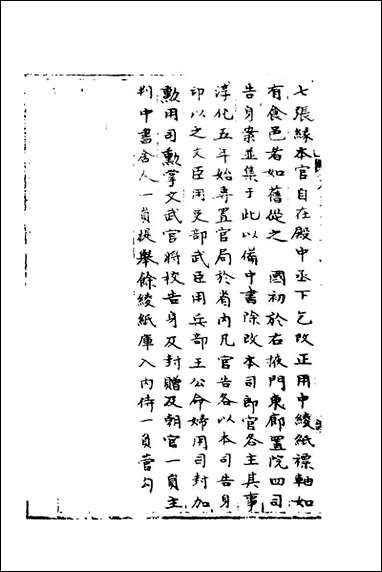 七張緣本官自在殿中丞下乞改正用中綾紙褾軸如
有食邑者如舊從之　國初於右掖門東廊置院四司
告身案並集于此以備中書除改本司郎官各主其事
淳化五年始專置官局於省内凡官告各以本司告身
印印之文臣用吏部武臣用兵部王公命婦用司封加
勲用司勲掌文武官將校告身及封贈及朝官一員主
判中書舍人一員提舉餘綾紙庫入内侍一員管勾